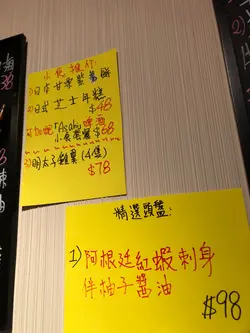 小食推介
1)日本甘栗蕃薯餅
2)日式芝士年糕
$48
加配「Asahi啤酒
小食套餐$68
3)明太子雞翼(4隻)
$78
精選頭盤:
1)阿根廷紅蝦刺身
伴柚子醬油
$98